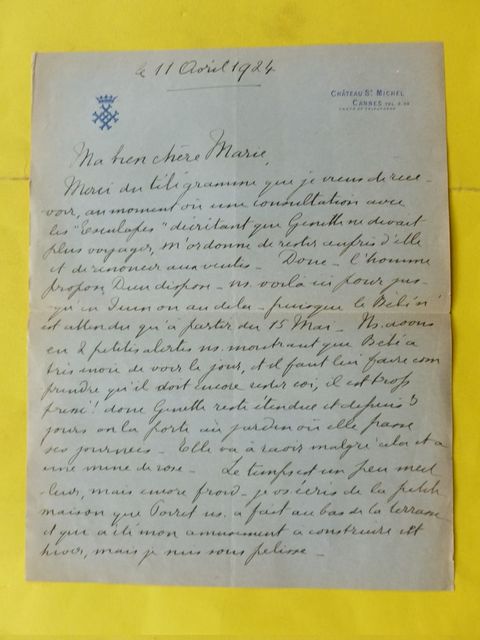 le 11 Avril 1924
CHÂTEAU St MICHEL
CANNES TEL. 
Ma bien chère Marie,
Merci du télégramme que je viens de rece-
-voir, au moment où une consultation avec
les "Esculapes" décrétant que Ginette ne devait
plus voyager, m'ordonne de rester auprès d'elle
et de renoncer aux ventes - Donc - l'homme
propose Dieu dispose - ns. voilà ici pour jus-
qu'en Juin ou au delà - puisque le Bébé n'
est attendu qu'à partir du 15 Mai - Ns. avons
eu 2 petites alertes ns. montrant que Bébé a
très envie de voir le jour, et il faut lui faire com
prendre qu'il doit encore rester coi, il est trop
pressé! donc Ginette reste étendue et depuis 3
jours on la porte au jardin où elle passe
ses journées - Elle va à ravir malgré cela et a
une mine de rose - Le temps est un peu meil
-leur, mais encore froid - je vs écris de la petite
maison que Poiret ns. a fait au bas de la terrasse
et qui a été mon amusement à construire cet
hiver, mais je suis sous pelisse -